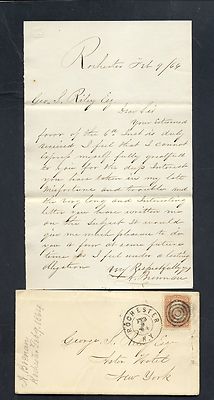 Rochester Feb 9/64
Geo. S. Riley Esq
Dear Sir
Your esteemed
favor of the 6th Inst is duly
received, I feel that I cannot
express myself fully grateful
to you for the deep Interest
you have taken in my late
Misfortune and troubles and
the very long and Interesting
letter you have written me
on the Subject &
give me much pleasure to do
you a favor at some future
time as I feel under a lasting
obligation
Very Respectfully
Brennan
ROCHESTER
N.Y.
George S. Riley Esq
Astor Hotel
New York
Brennan
Rochester Feb 9, 1864